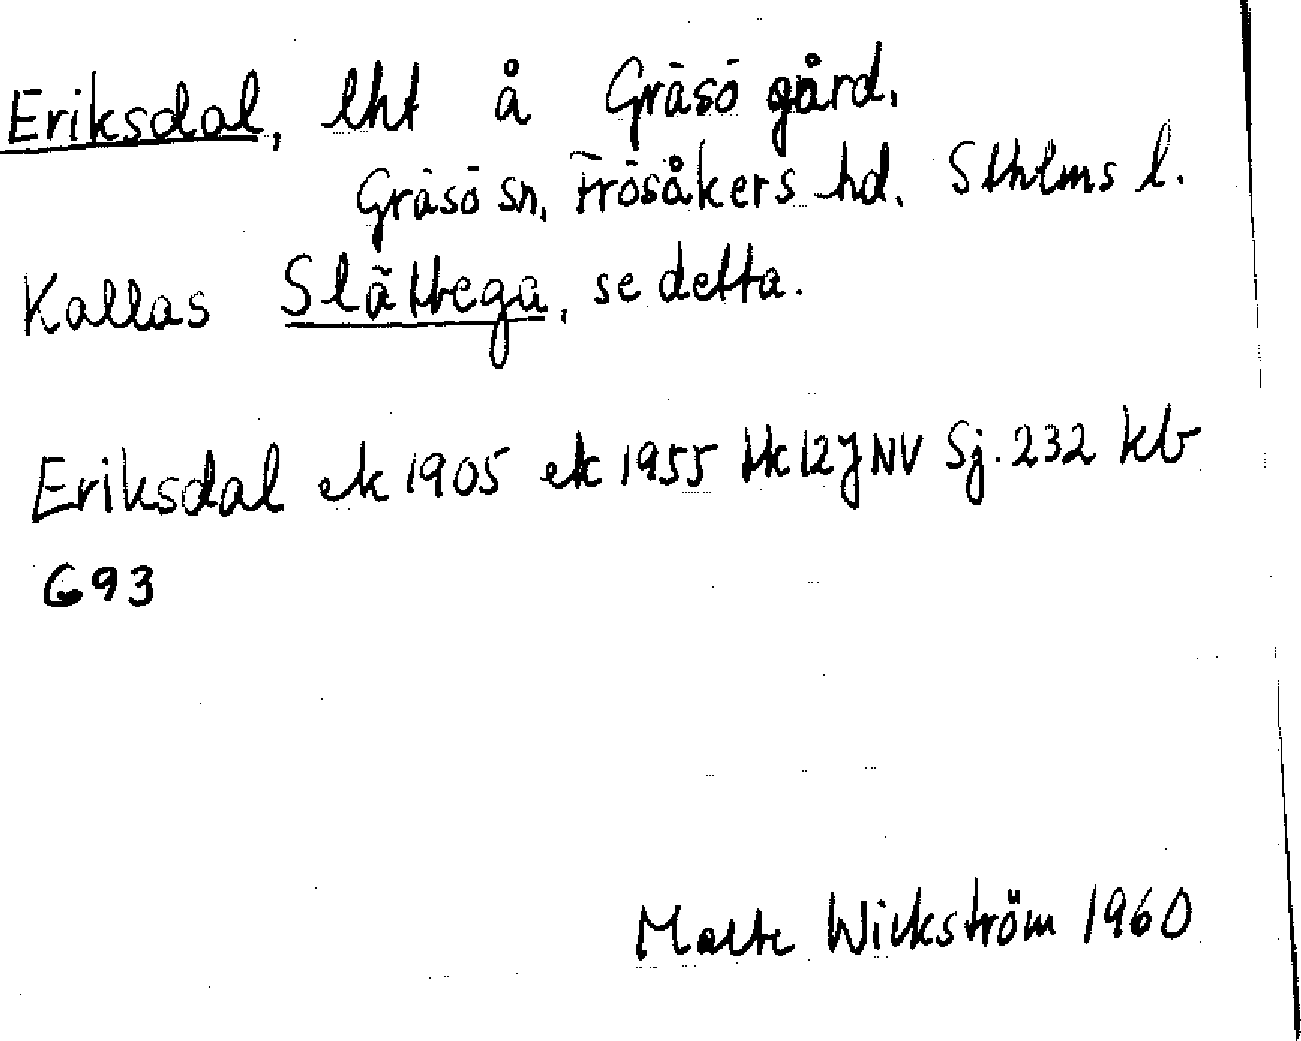 Eriksdal, lht å Gräsö gård.
Gräsö sn. Frösåkers hd. Sthlms l.
Kallas Slättega, se detta.
Eriksdal ek 1905 ek 1955 kk 12J NV Sj. 232 kb
G93
Malte Wickström 1960